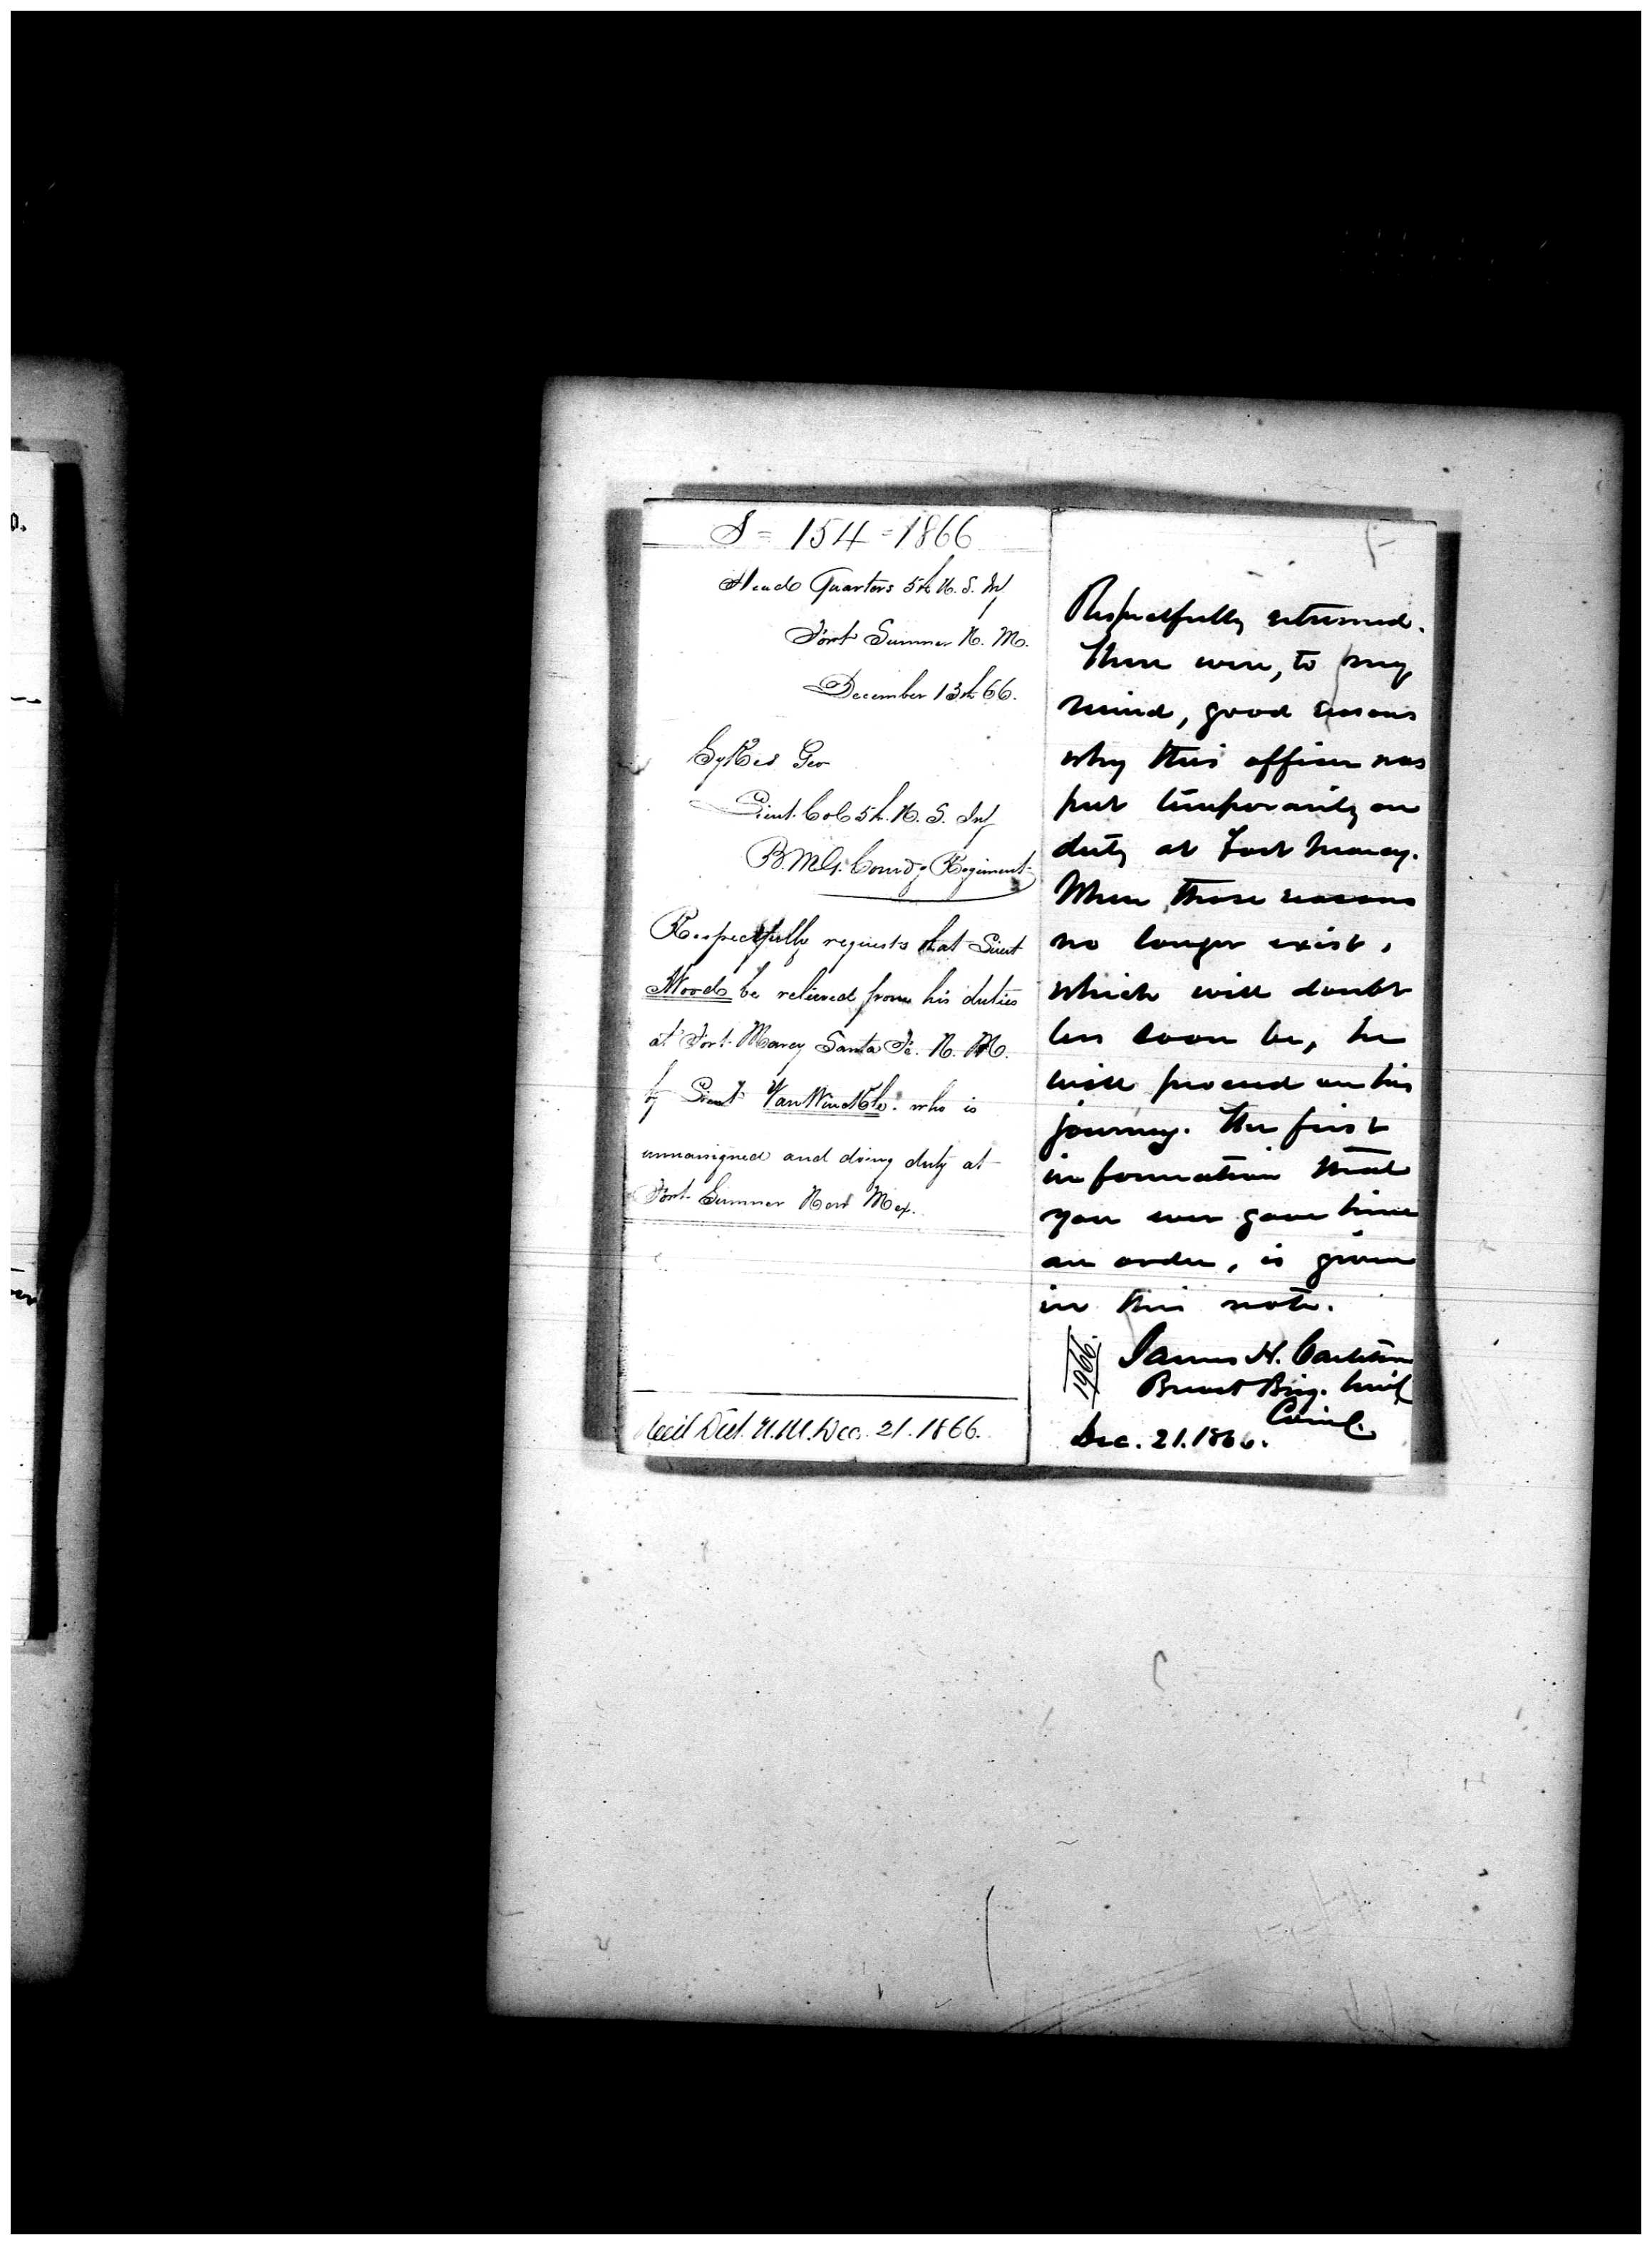 S = 154 = 1866
Head Quarters 5th U. S. Inf
Fort Sumner N. M.
December 13th 66.
Sykes Geo
Lieut. Col 5th. U. S. Inf
B. M. G. Comdg Regiment.
Respectfully requests that Lieut
Woods be relieved from his duties
at Fort Marcy Santa Fe. N. M.
by Lieut Van Winckle. who is
unassigned and doing duty at
Fort Sumner New Mex.
Recd Dist. N. M. Dec. 21. 1866.
Respectfully returned.
There were, to my
mind, good reasons
why this officer was
put temporarily on
duty at Fort Marcy.
When those reasons
no longer exist,
which will doubt
less soon be, he
will proceed on his
journey. The first
information that
you ever gave him
an order, is given
in this note.
James H. Carleton
Brevet Brig. Genl
Comd.
Dec. 21. 1866.
1966.